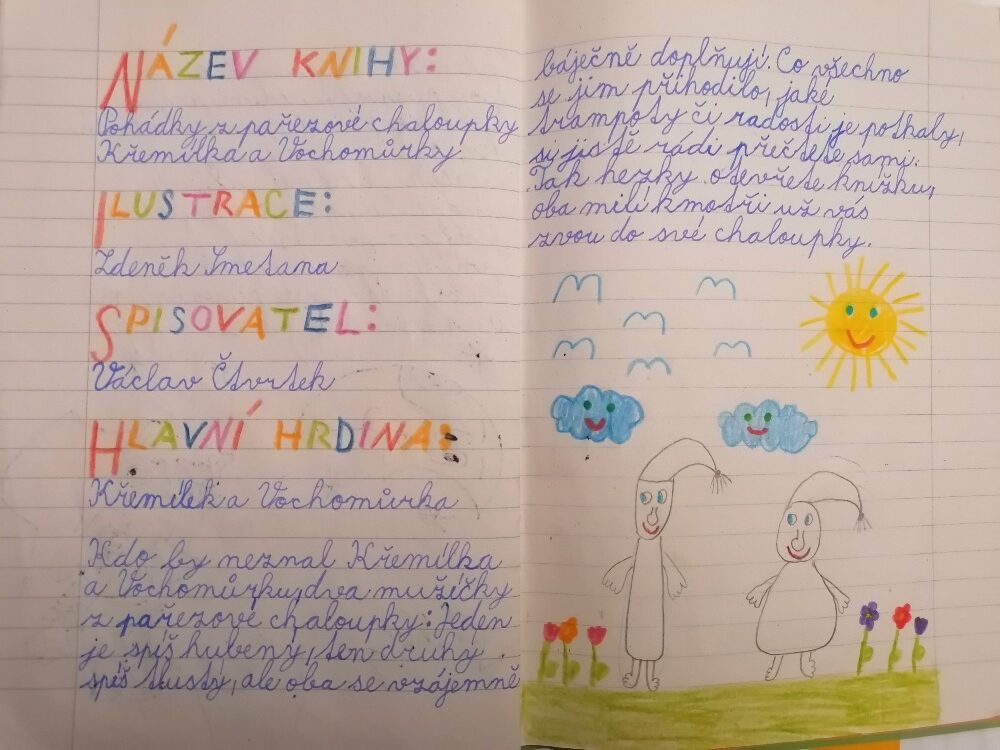 NÁZEV KNIHY:
Pohádky z pařezové chaloupky
Křemílka a Vochomůrky
ILUSTRACE:
Zdeněk Smetana
SPISOVATEL:
Václav Čtvrtek
HLAVNÍ HRDINA:
Křemílek a Vochomůrka
Kdo by neznal Křemílka
a Vochomůrku, dva mužíčky
z pařezové chaloupky: Jeden
je spíš hubený, ten druhý
spíš tlustý, ale oba se vzájemně
báječně doplňují. Co všechno
se jim přihodilo, jaké
trampoty či radosti je potkaly,
si jistě rádi přečtete sami.
Tak hezky otevřete knížku,
oba milí kmotři už vás
zvou do své chaloupky.